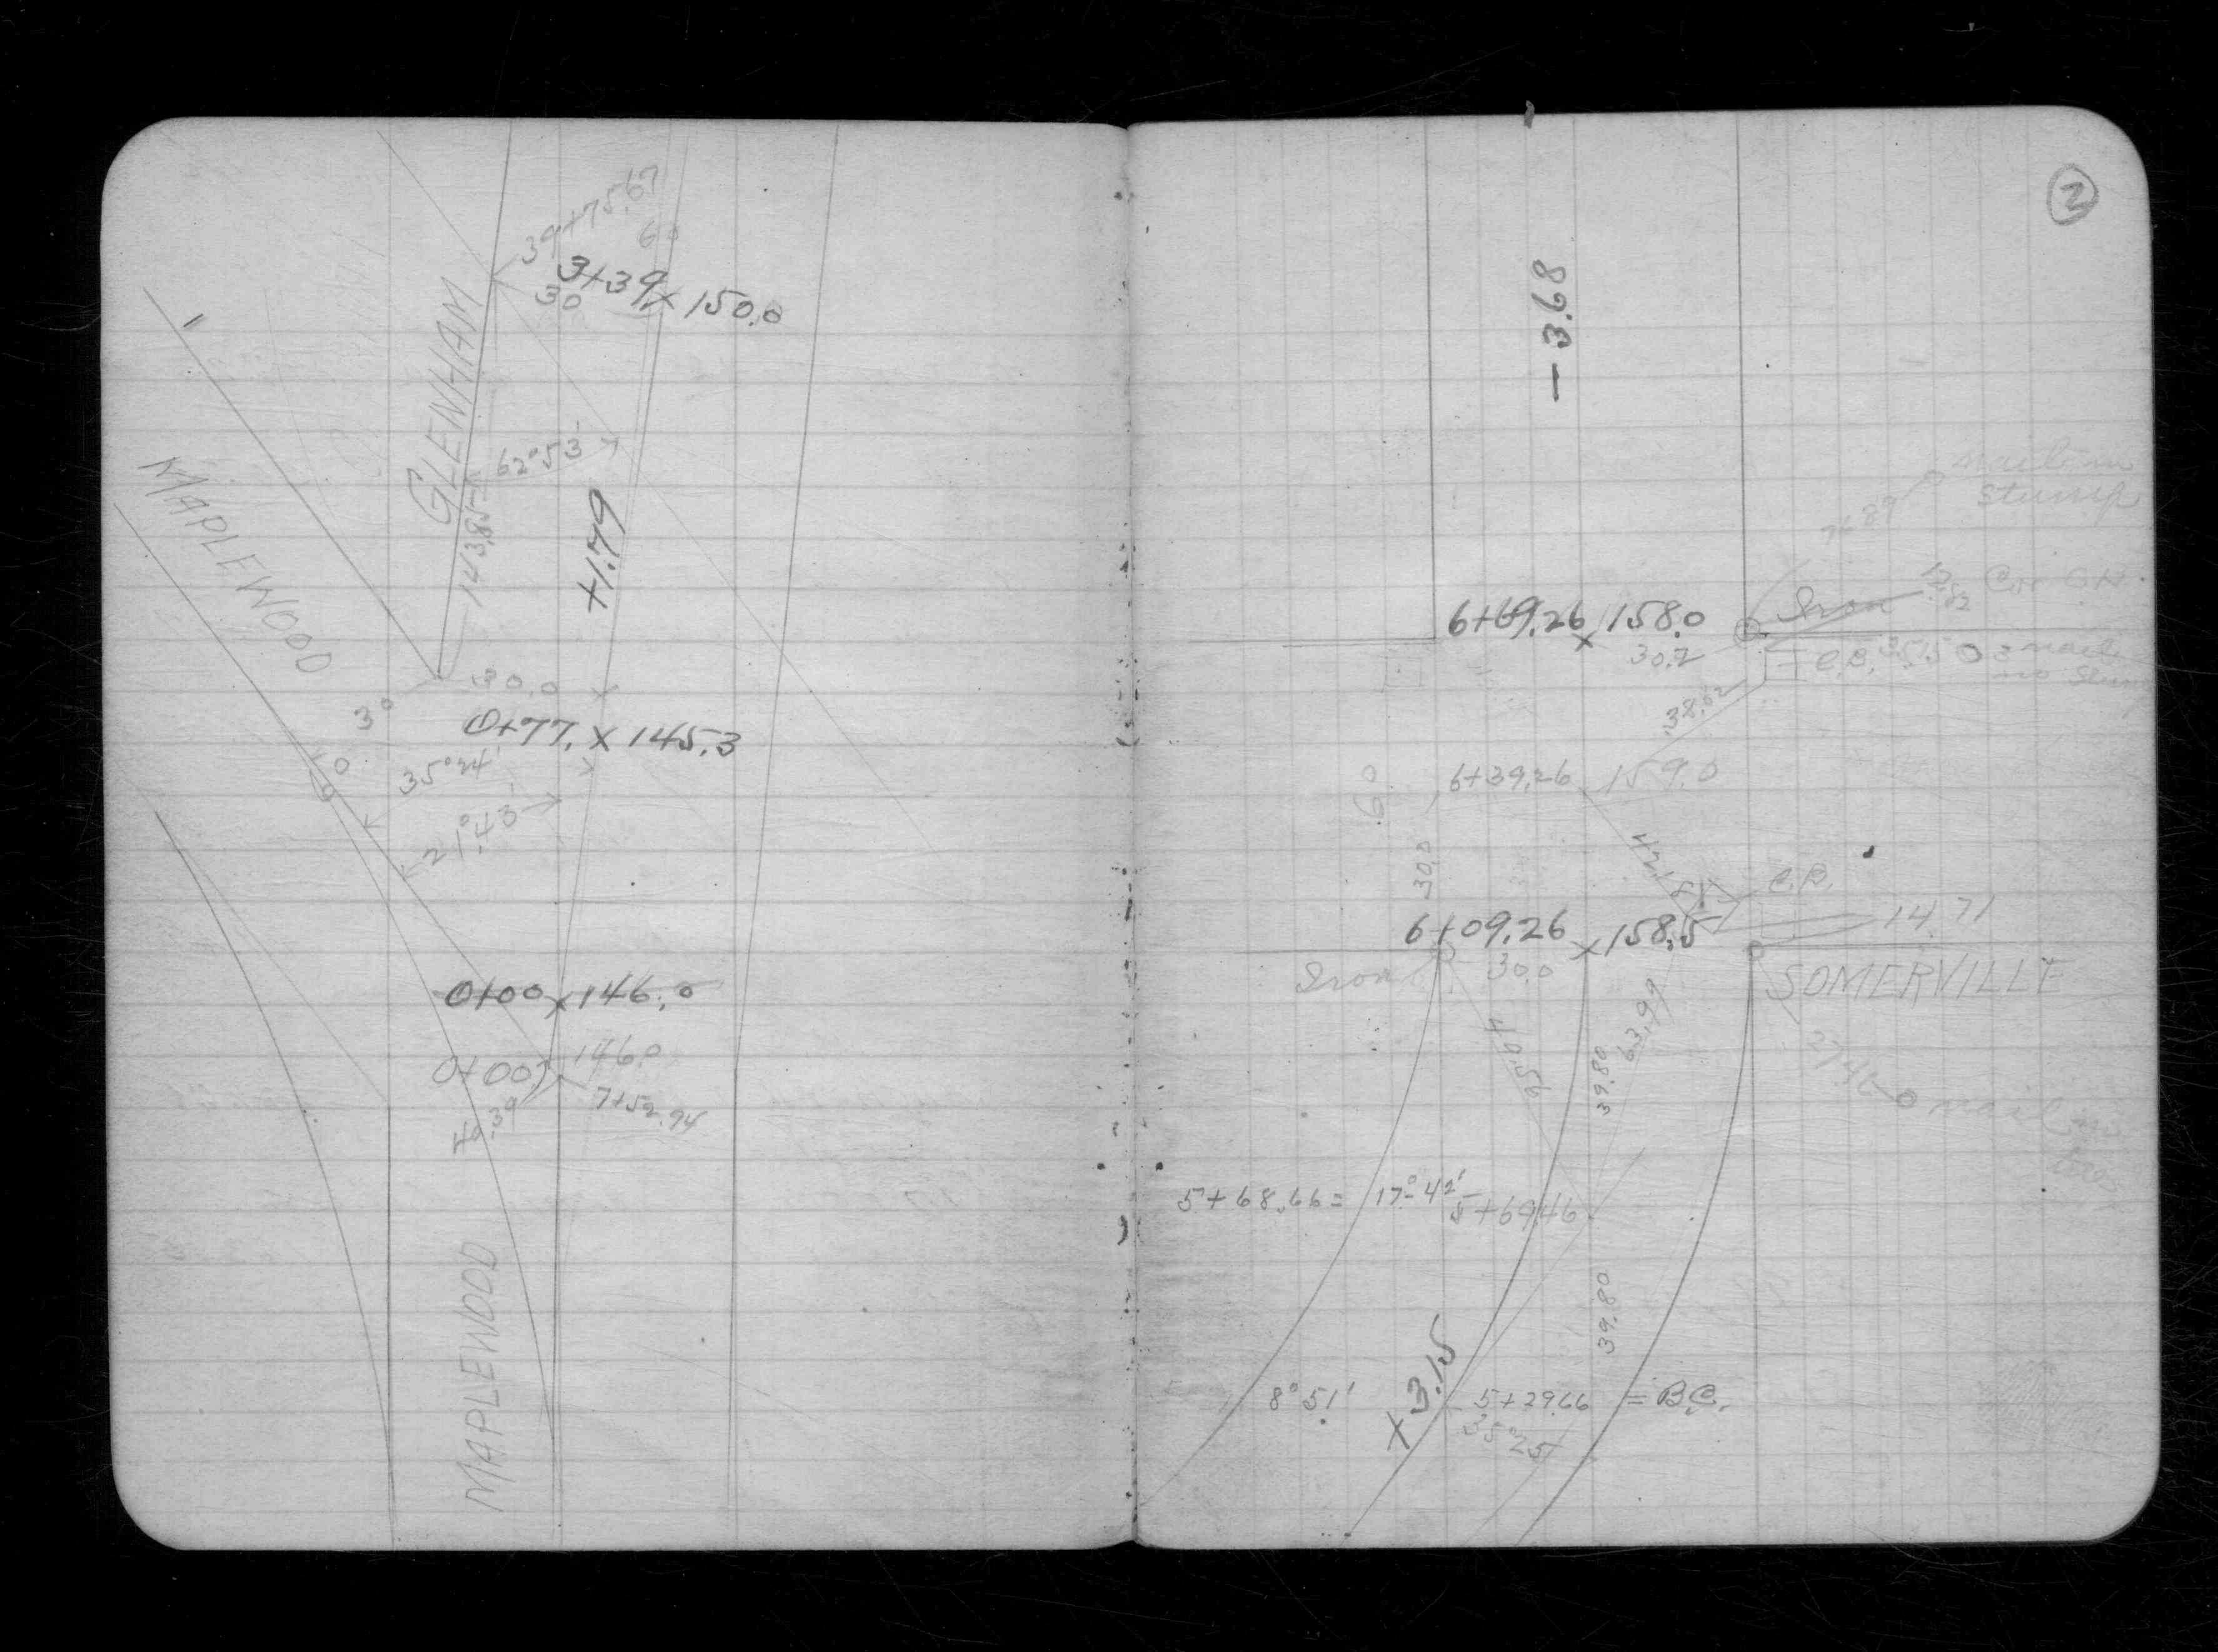 39+75.67
60
3+39 x 150.0
30
GLENHAM
62°53'
143.85
+1.79
MAPLEWOOD
30.0
30
0+77. x 145.3
60
35°24'
21°43'
0+00 x 146.0
0+00 146.0
7+52.94
.39
MAPLEWOOD
2
-3.68
nail in
stump
6+69.26 x 158.0
30.2
Iron
Cor
C.B. 35.15
nail
38.02
60
6+39.26 159.0
30.0
C.B.
14.71
6+09.26 x 158.5
Iron
30.0
SOMERVILLE
63.99
39.80
27.42
nail
5+68.66 = 17°-42'
5+69.46
39.80
+3.15
8°51'
5+29.66 = B.C.
35°25'